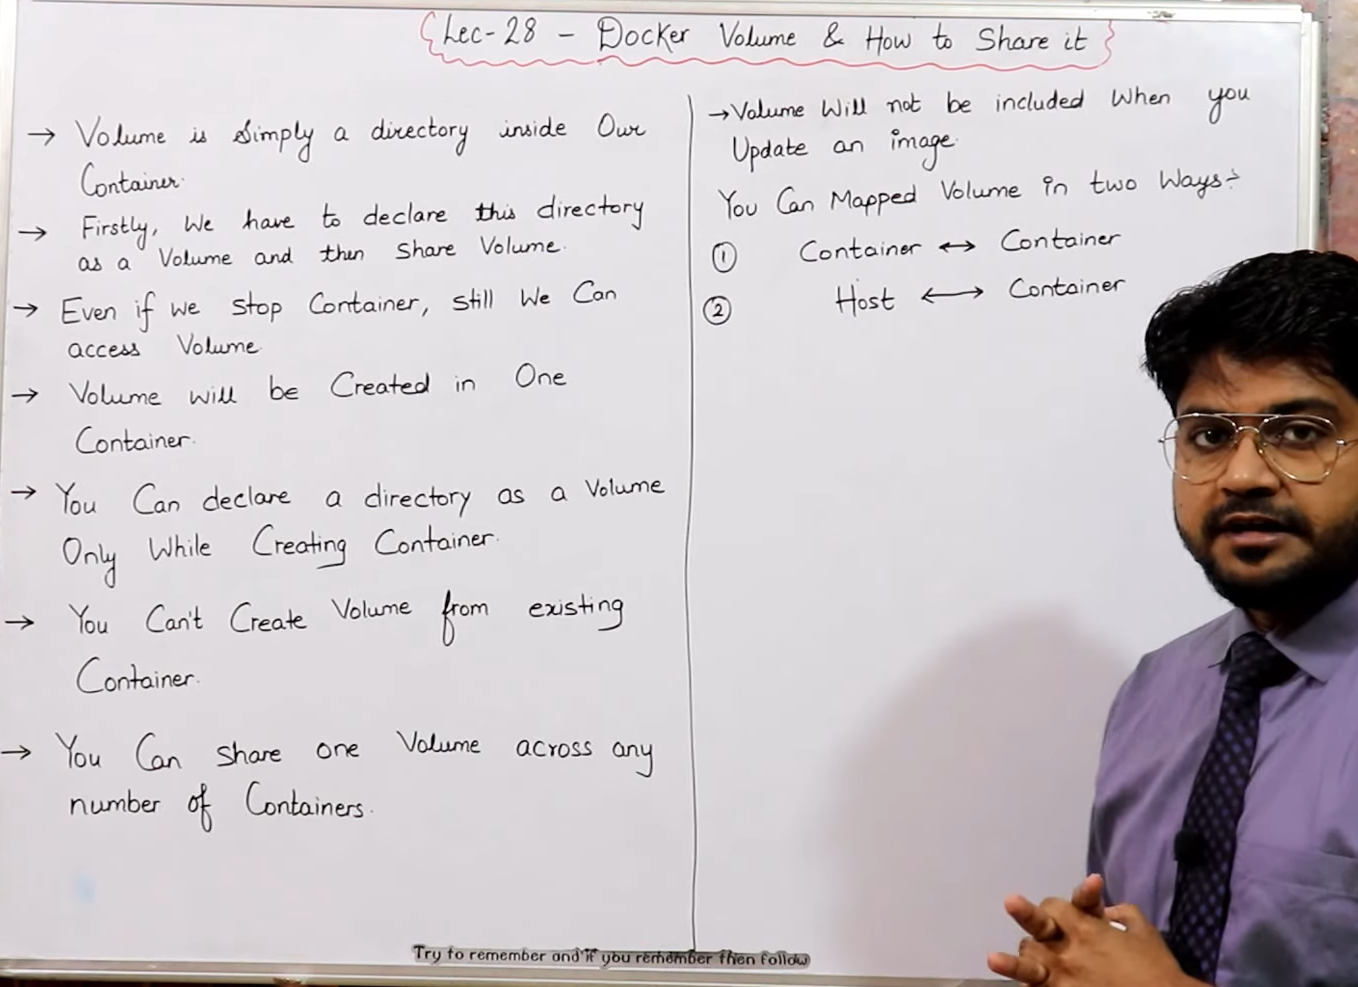 Lec-28 - Docker Volume & How to Share it
→ Volume is Simply a directory inside Our
Container.
→ Firstly, We have to declare this directory
as a Volume and then Share Volume.
→ Even if we stop Container, still We Can
access Volume.
→ Volume will be Created in One
Container.
→ You Can declare a directory as a Volume
Only While Creating Container.
→ You Can't Create Volume from existing
Container.
→ You Can Share one Volume across any
number of Containers.
→ Volume Will not be included When you
Update an image.
You Can Mapped Volume in two Ways:-
① Container ↔ Container
② Host ↔ Container
Try to remember and if you remember then follow